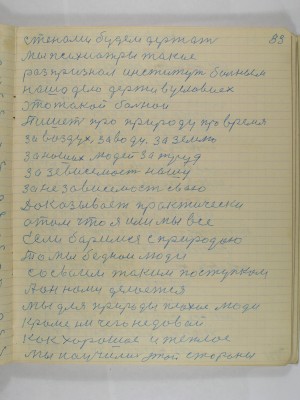 стенами будем держат 93
мы психиатры такие
раз признал институт больнем
нашо дело держи в условиех
Это такой болной
Пишет про природу про время
За воздух, за воду, за землю
За наших людей за труд
За зависемост нашу
За не зависемост свою
Доказывает практически
о том что я или мы все
Если баримся с природаю
То мы бедной люди
со своим таким поступкам
А он нами делается
мы для природы плохие люди
Кроме им чего недовай
как хорошое и теплое
мы получили этой стороны